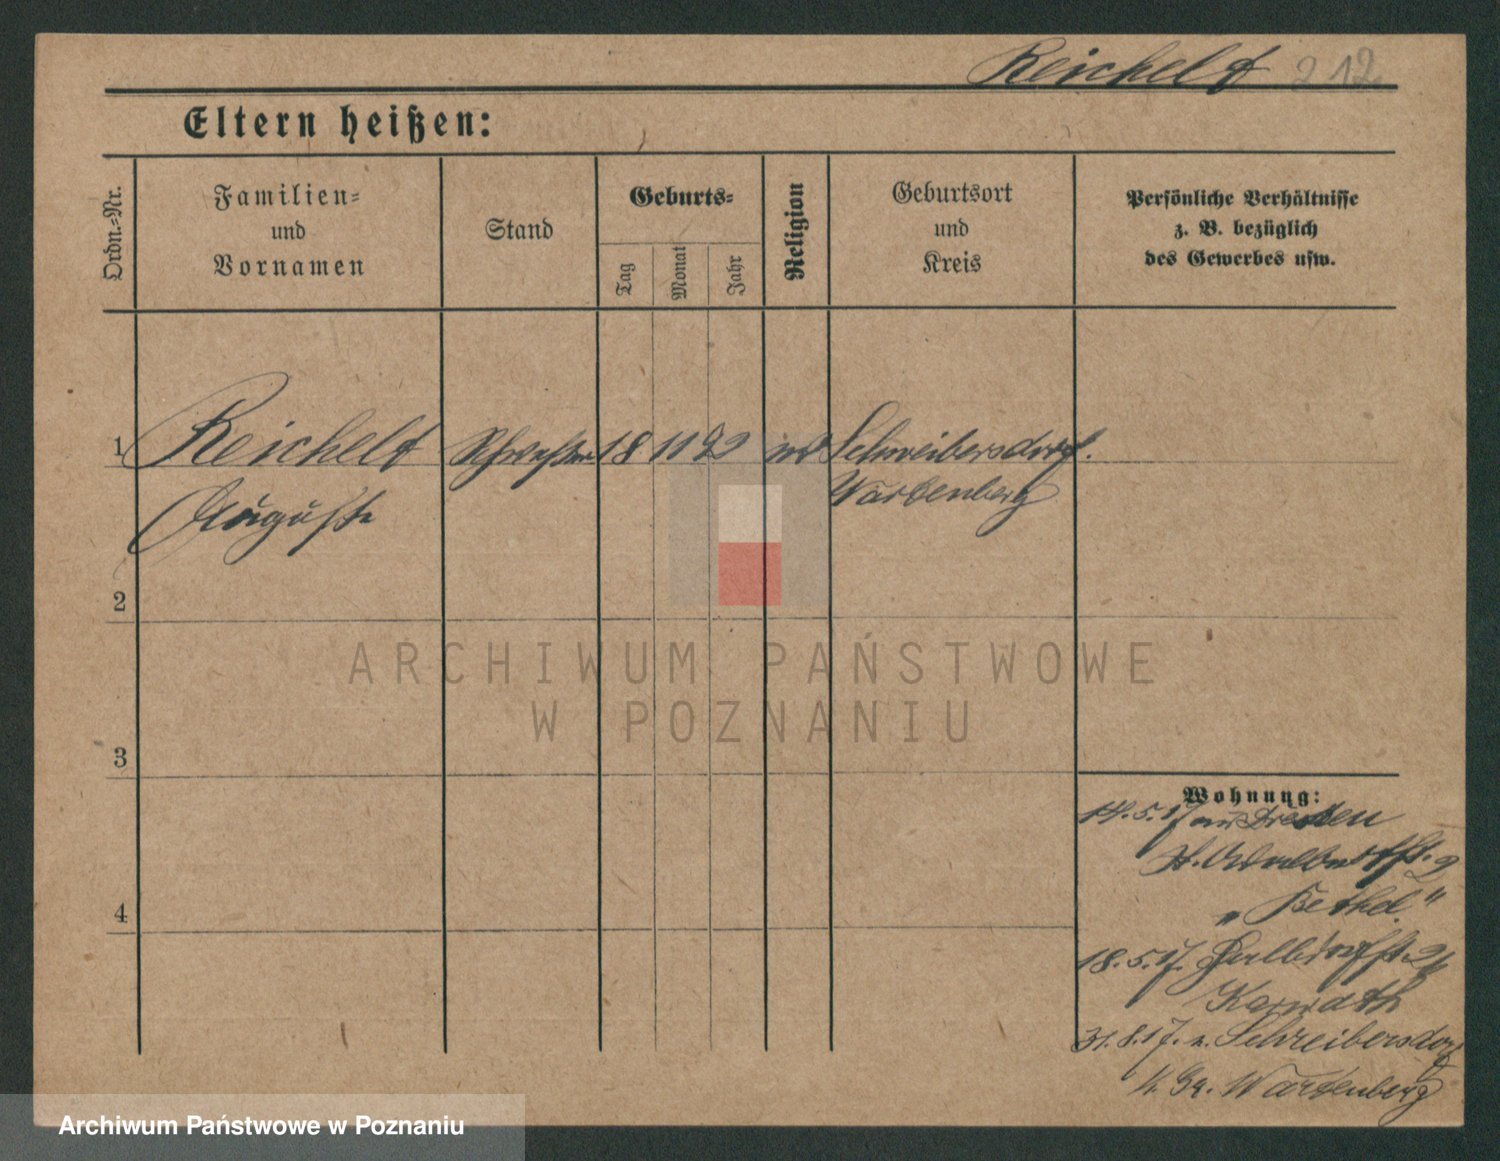 Reichelt 212
Eltern heißen:
Ordn.-Nr.
Familien-
und
Vornamen
Stand
Geburts-
Tag
Monat
Jahr
Religion
Geburtsort
und
Kreis
Persönliche Verhältnisse
z. B. bezüglich
des Gewerbes usw.
1 Reichelt Schwester 18 11 92 Schreibersdorf.
Auguste Wartenberg
2
3
4
Wohnung:
14.5.17 aus Dresden
St. Adalbertst. 9
"Bethel"
18.5.17.
Karwath
31.8.17. n. Schreibersdorf
Wartenberg
ARCHIWUM PAŃSTWOWE
W POZNANIU
Archiwum Państwowe w Poznaniu